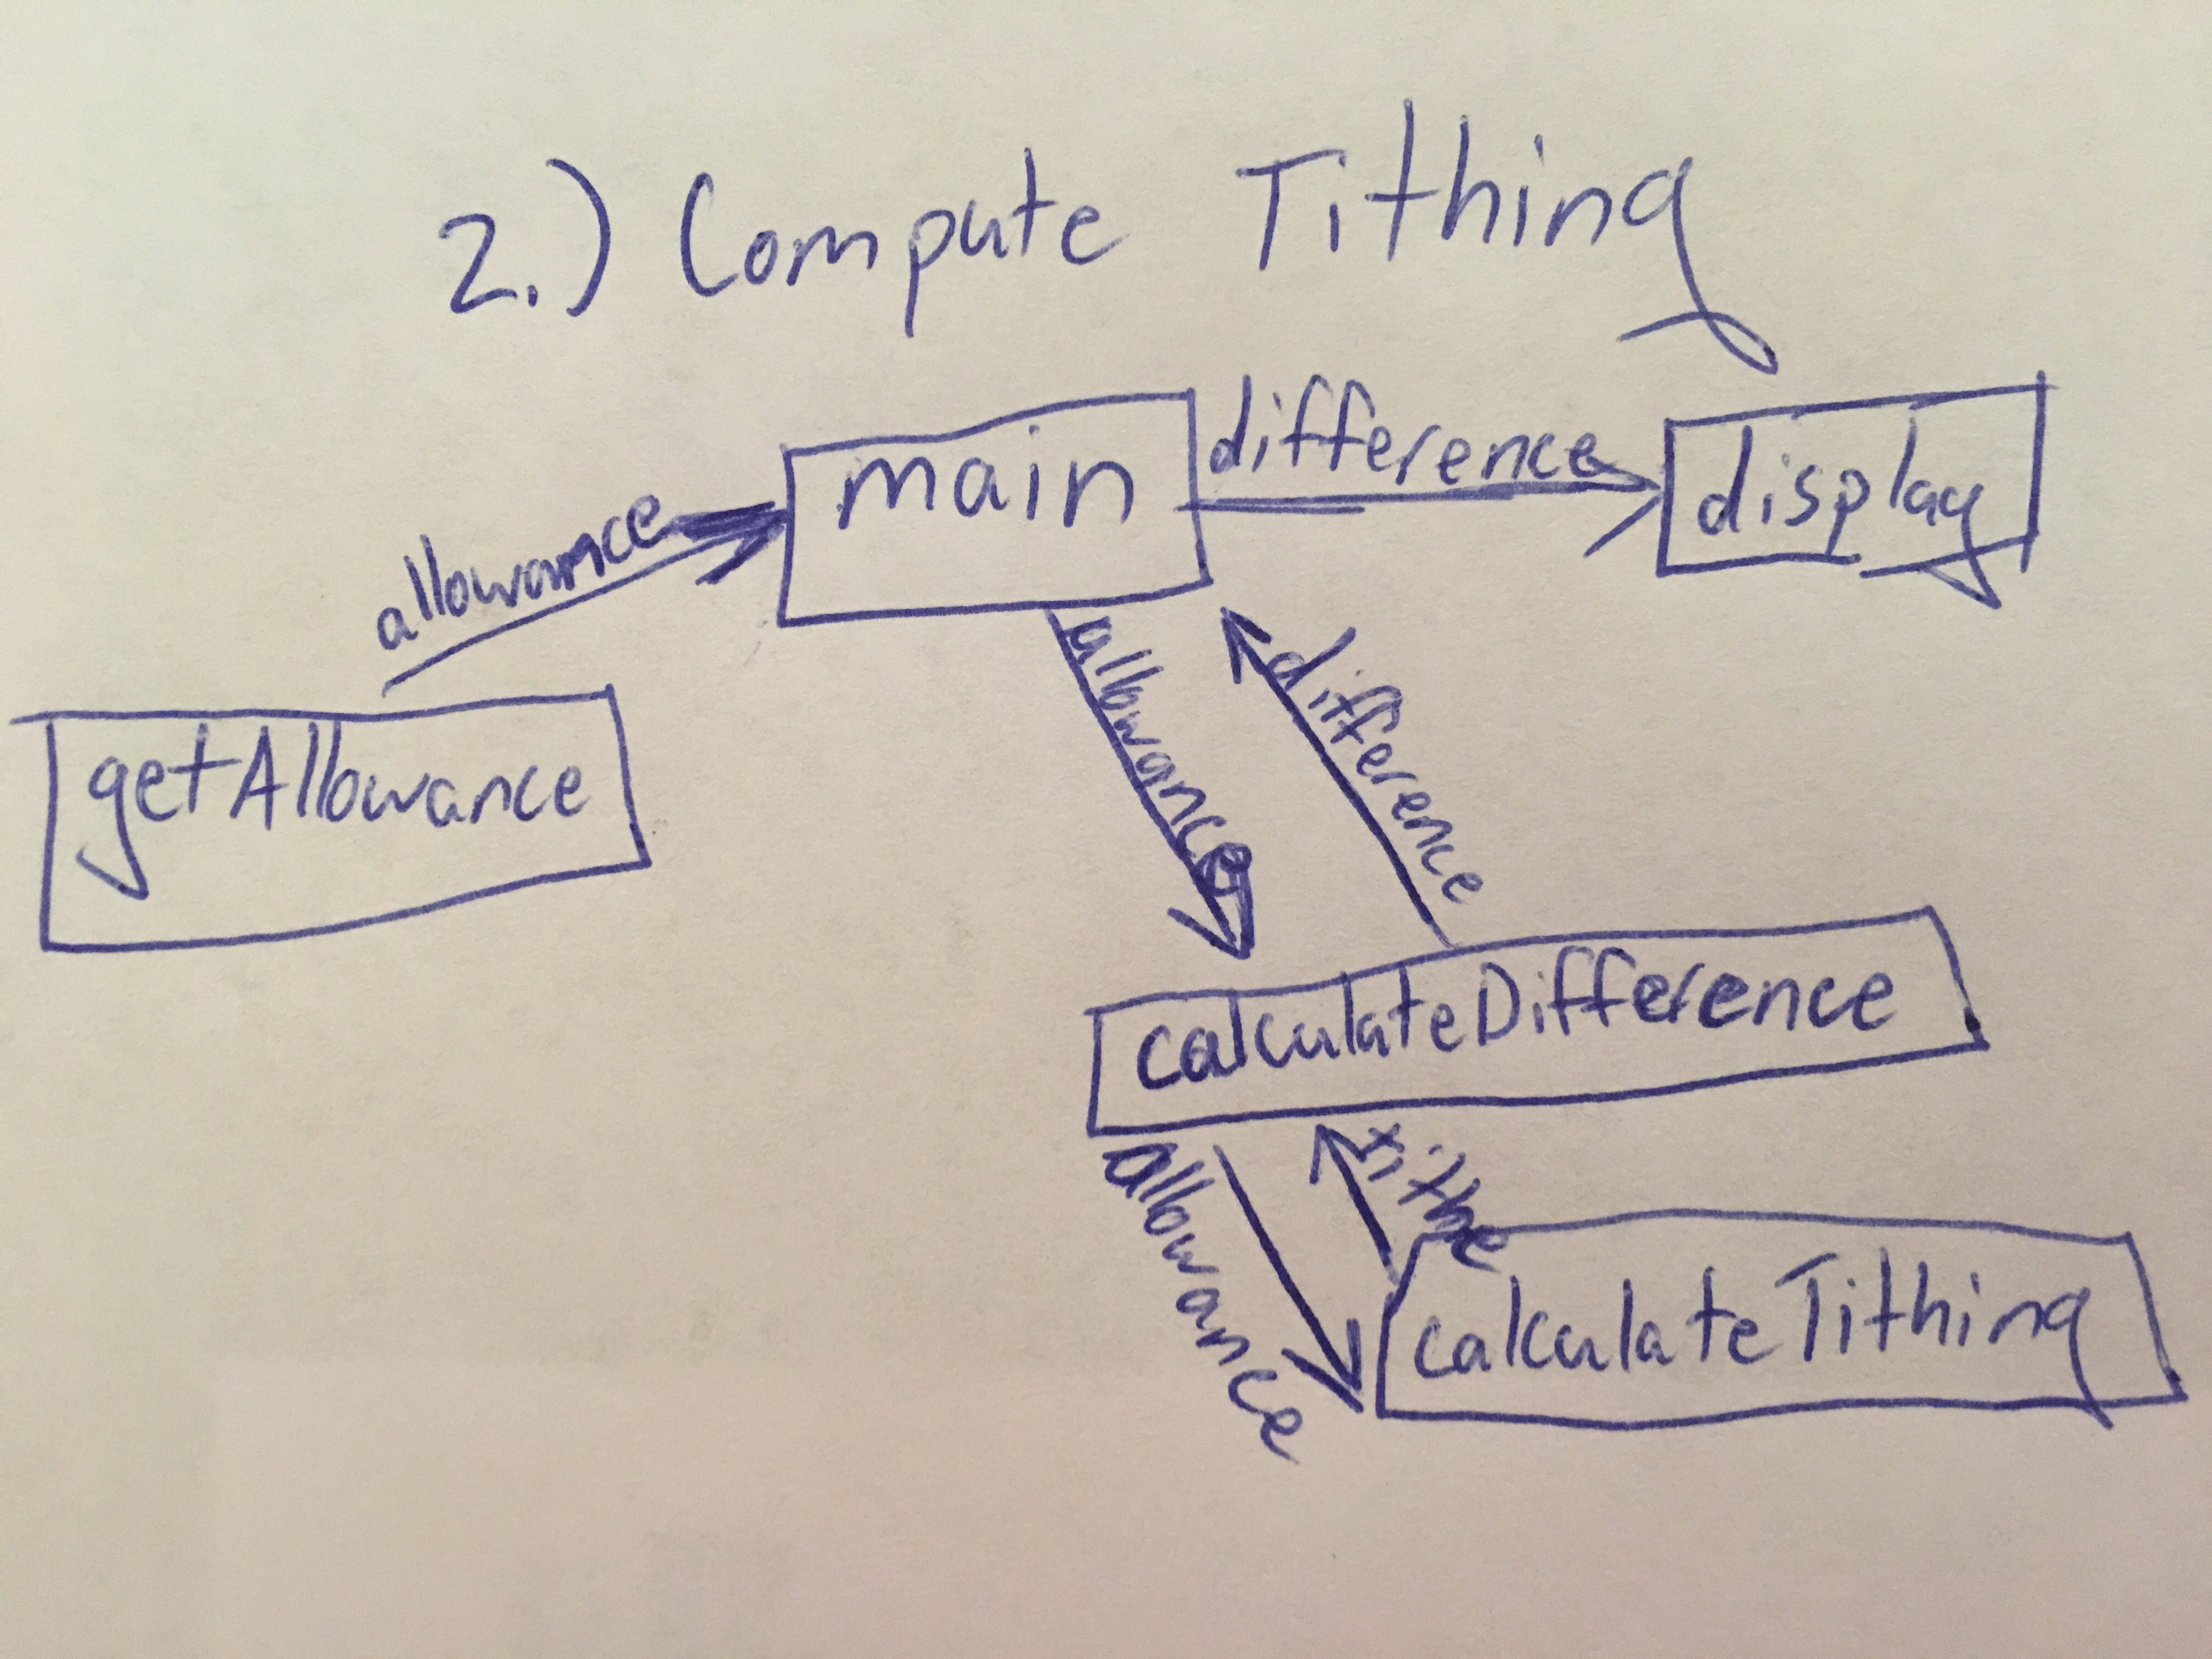 2.) Compute Tithing
main
difference
display
allowance
getAllowance
allowance
difference
calculateDifference
allowance
tithe
calculateTithing